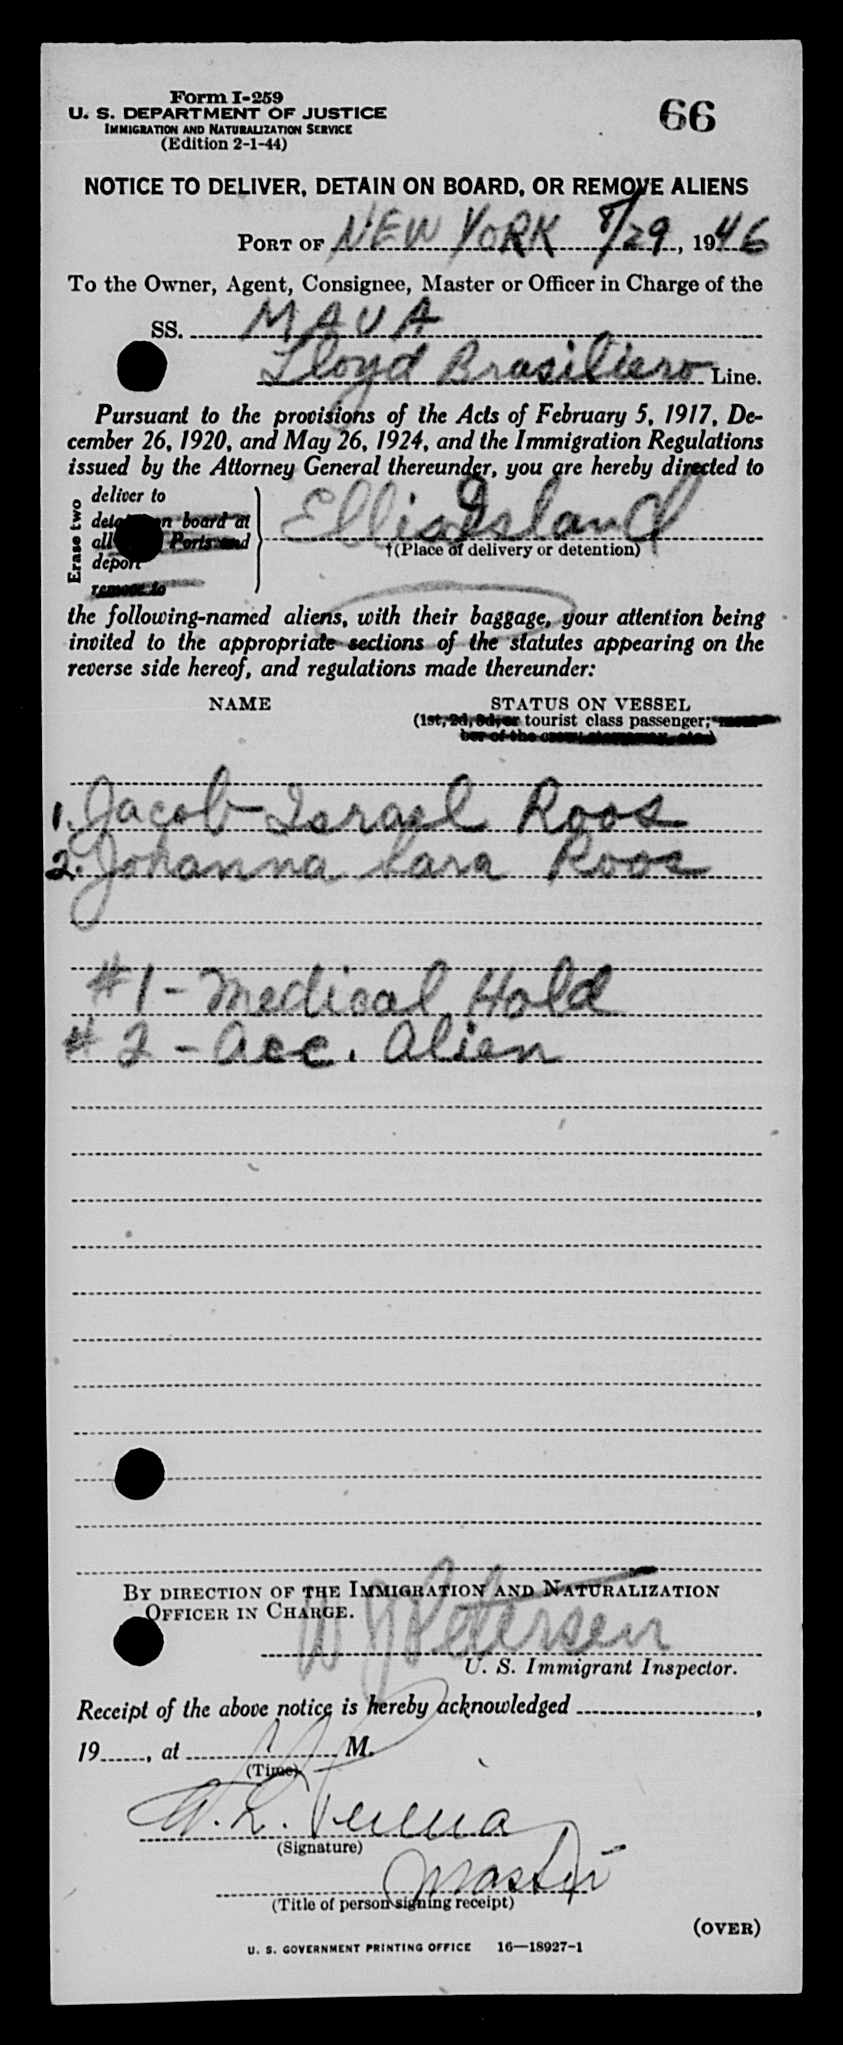 Form I-259
66
U. S. DEPARTMENT OF JUSTICE
IMMIGRATION AND NATURALIZATION SERVICE
(Edition 2-1-44)
NOTICE TO DELIVER, DETAIN ON BOARD, OR REMOVE ALIENS
PORT OF NEW YORK 8/29, 1946
To the Owner, Agent, Consignee, Master or Officer in Charge of the
SS. MAUA
Lloyd Brasiliero Line.
Pursuant to the provisions of the Acts of February 5, 1917, De-
cember 26, 1920, and May 26, 1924, and the Immigration Regulations
issued by the Attorney General thereunder, you are hereby directed to
Erase two
deliver to
detain on board at
all Ports and
deport
remove to
Ellis Island
†(Place of delivery or detention)
the following-named aliens, with their baggage, your attention being
invited to the appropriate sections of the statutes appearing on the
reverse side hereof, and regulations made thereunder:
NAME STATUS ON VESSEL
(1st, 2d, 3d, or tourist class passenger; mem-
ber of the crew, stowaway, etc.)
1. Jacob Israel Roos
2. Johanna Sara Roos
#1 - Medical Hold
#2 - Acc. Alien
BY DIRECTION OF THE IMMIGRATION AND NATURALIZATION
OFFICER IN CHARGE.
W J Petersen
U. S. Immigrant Inspector.
Receipt of the above notice is hereby acknowledged ,
19 , at M.
(Time)
(Signature)
Master
(Title of person signing receipt)
(OVER)
U. S. GOVERNMENT PRINTING OFFICE 16—18927-1